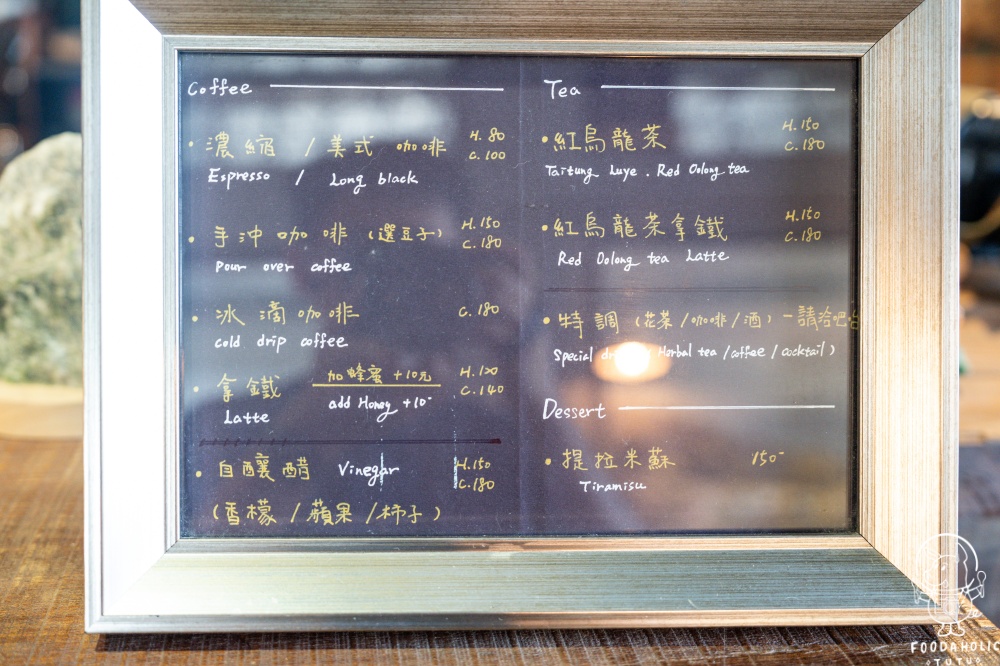 Coffee
• 濃縮 / 美式 咖啡 H. 80
C. 100
Espresso / Long black
• 手沖咖啡 (選豆子) H. 150
C. 180
Pour over coffee
• 冰滴咖啡 C. 180
cold drip coffee
• 拿鐵 加蜂蜜 +10元 H. 120
C. 140
Latte add Honey +10-
• 自釀醋 Vinegar H. 150
C. 180
(香檬 / 蘋果 / 柿子)
Tea
• 紅烏龍茶 H. 150
C. 180
Taitung Luye . Red Oolong tea
• 紅烏龍茶拿鐵 H. 150
C. 180
Red Oolong tea Latte
• 特調 (花茶 / 咖啡 / 酒) - 請洽吧台
Special Herbal tea / coffee / cocktail)
Dessert
• 提拉米蘇 150-
Tiramisu
FOODAHOLIC